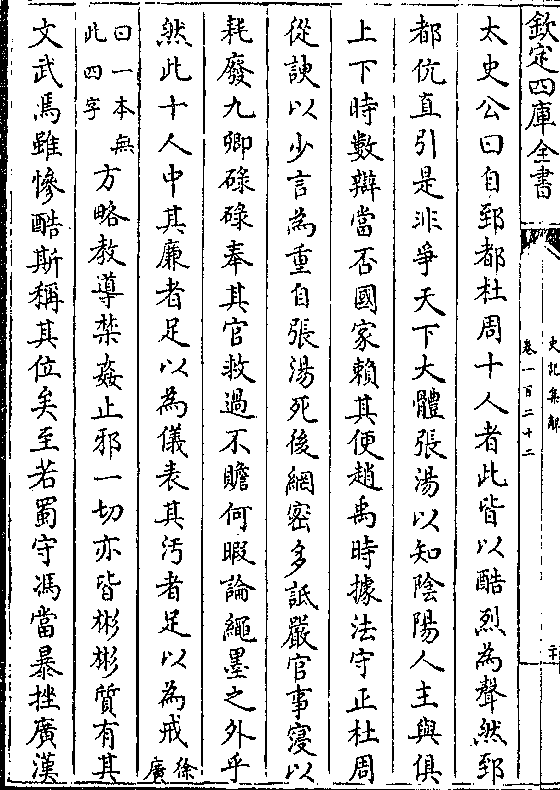 欽定四庫全書
史記集解
卷一百二十二
太史公曰自郅都杜周十人者此皆以酷烈為聲然郅
都伉直引是非爭天下大體張湯以知陰陽人主與俱
上下時數辯當否國家賴其便趙禹時據法守正杜周
從諛以少言為重自張湯死後網密多詆嚴官事寖以
耗廢九卿碌碌奉其官救過不贍何暇論繩墨之外乎
然此十人中其廉者足以為儀表其汚者足以為戒徐廣
曰一本無此四字方略教導禁姦止邪一切亦皆彬彬質有其
文武焉雖慘酷斯稱其位矣至若蜀守馮當暴挫廣漢